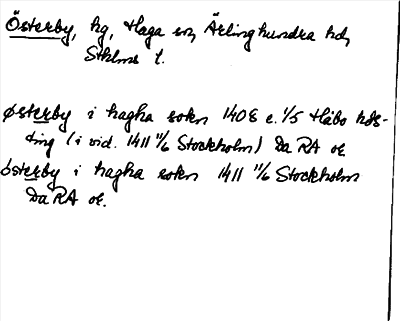 Österby, hg, Haga sn, Ärlinghundra hd,
Sthlms l.
østerby i hagha sokn 1408 e. 1/5 Håbo hds-
ting (i vid. 1411 11/6 Stockholm) Da RA or.
østerby i hagha sokn 1411 11/6 Stockholm
Da RA or.